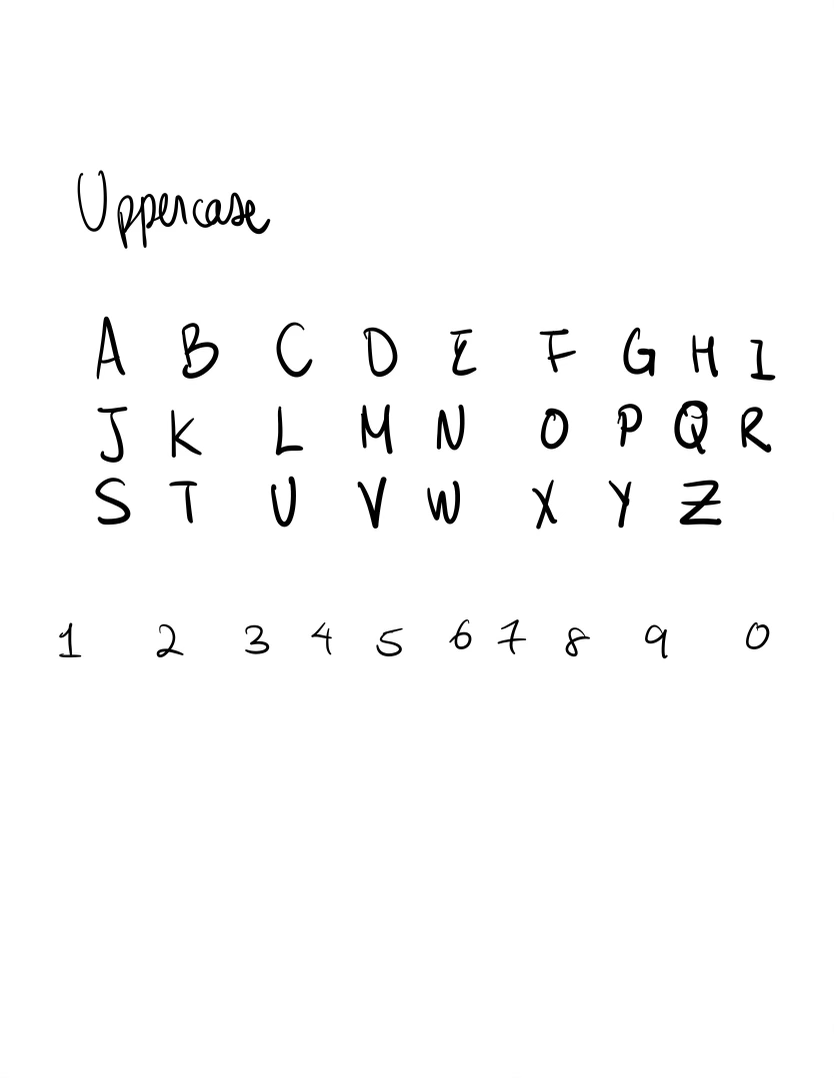 Uppercase
A B C D E F G H I
J K L M N O P Q R
S T U V W X Y Z
1 2 3 4 5 6 7 8 9 0